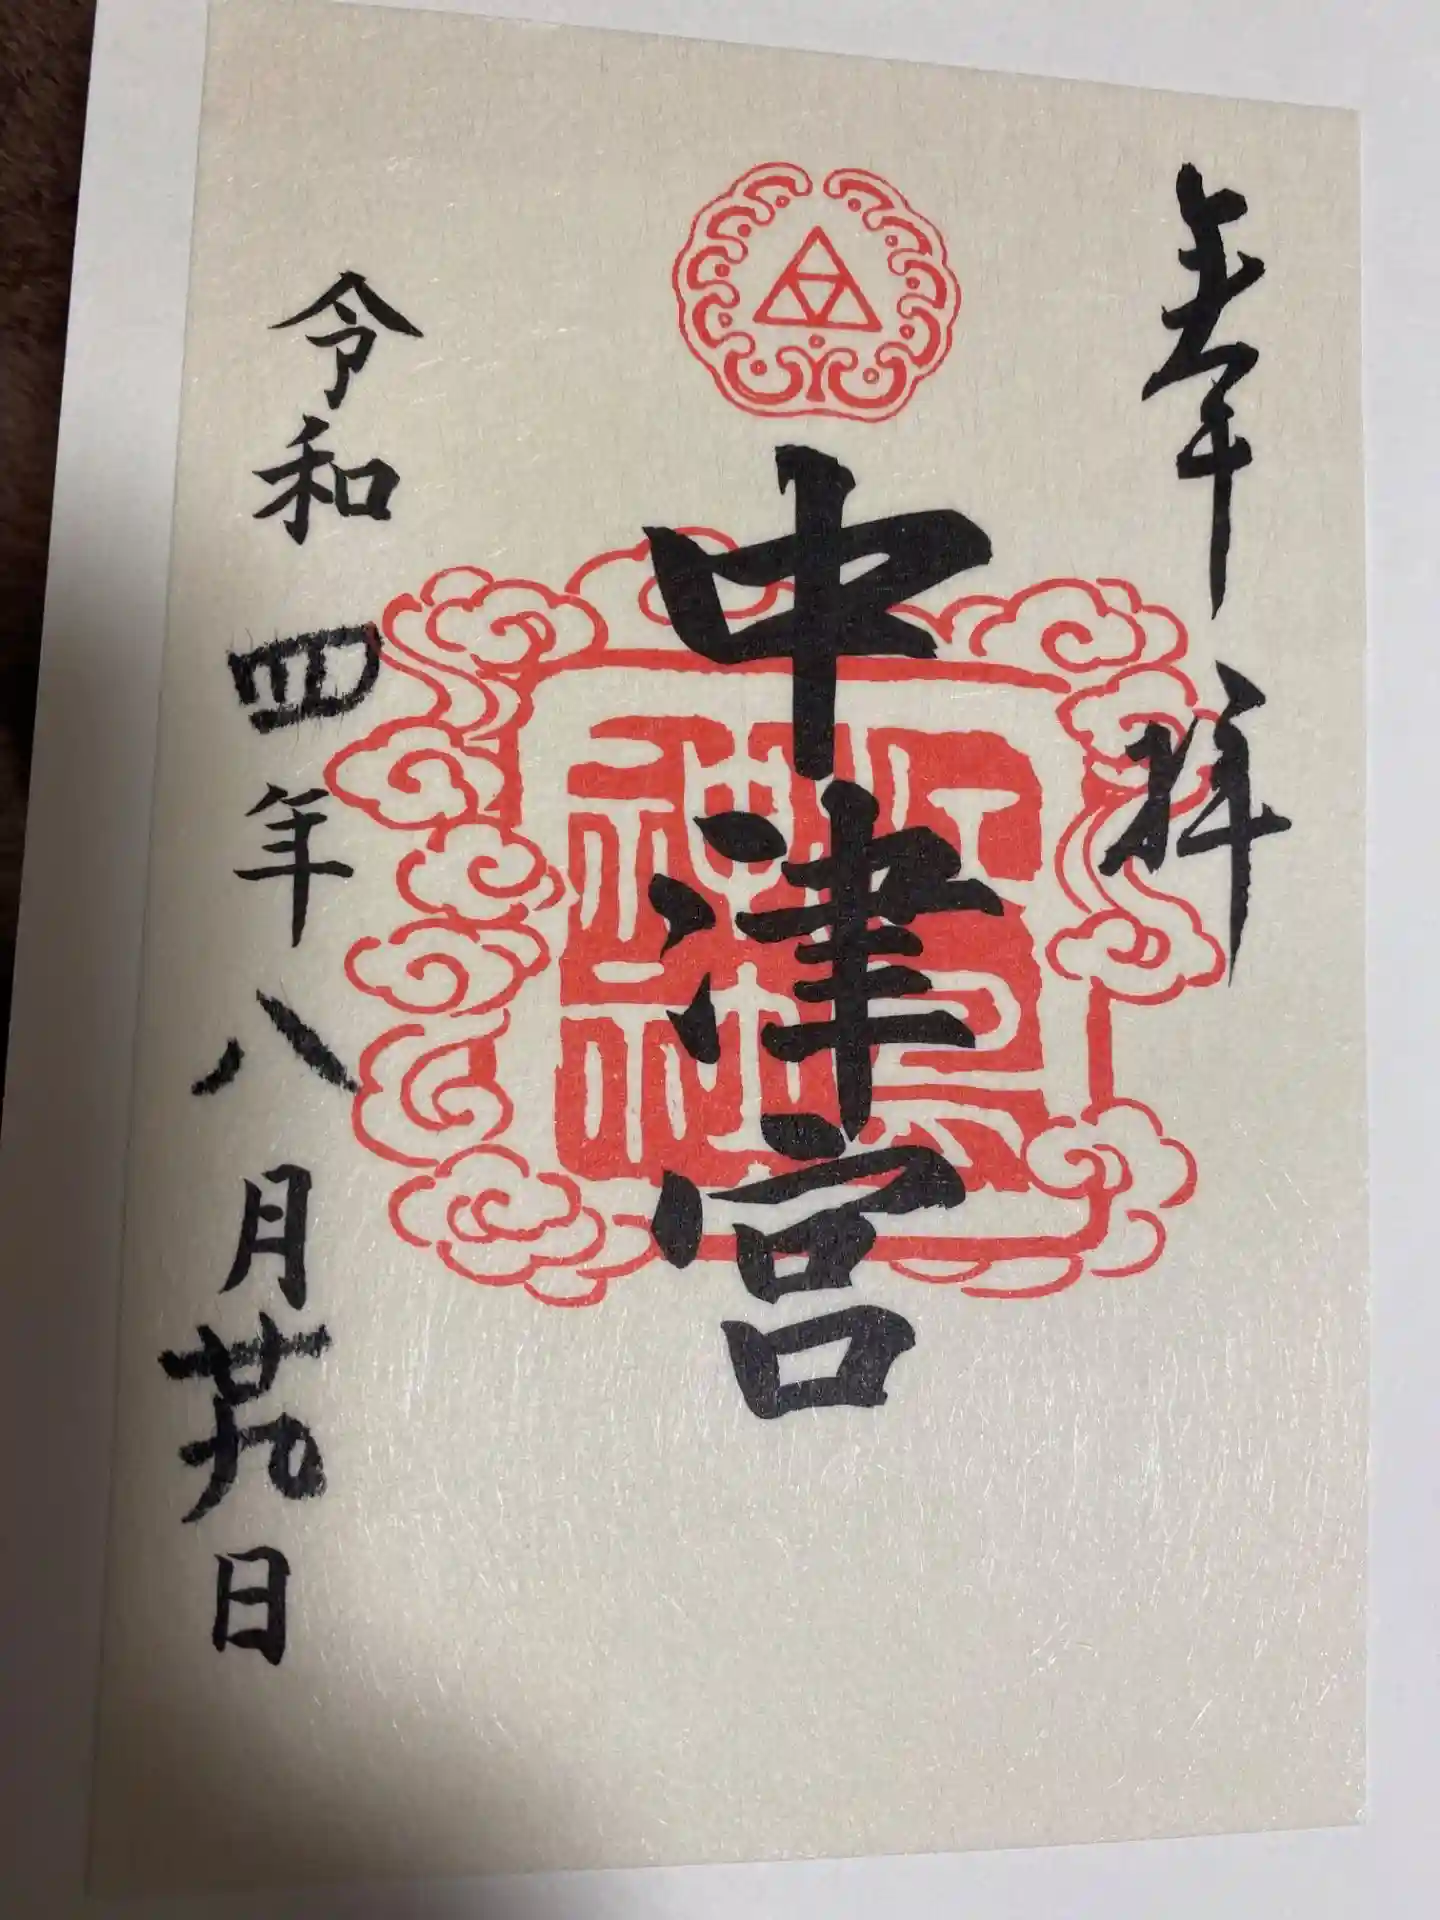 奉拝
中津宮
江島神社
令和四年八月廿九日